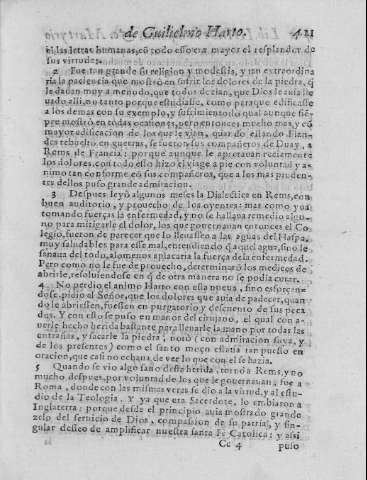 de Guilielmo Harto. 421
él las letras humanas, cō todo esso era mayor el resplandor de
sus virtudes.
2 Fue tan grande su religion y modestia, y tan extraordina
ria la paciencia que mostró en sufrir los dolores de la piedra, q̃
le dauan muy a menudo, que todos dezian, que Dios le auia lle
uado alli, no tanto porque estudiasse, como paraque edificasse
a los demas con su exemplo, y sufrimiento: lo qual aunque siē-
pre mostró en todas ocasiones, pero entonces mucho mas, y cō
mayor edificacion de los que le vian, quando estando Flan-
des rebuelto en guerras, se fue con sus compañeros de Duay, a
Rems de Francia: porque aunque le apretauan reciamente
los dolores, con todo ello hizo el viage a pie con voluntad y a-
nimo tan conforme cō sus compañeros, que a los mas pruden-
tes dellos puso grande admiracion.
3 Despues leyó algunos meses la Dialectica en Rems, con
buen auditorio, y prouecho de los oyentes: mas como y asi
tomando fuerças la enfermedad, y no se hallaua remedio algu-
no para mitigarle el dolor, los que gouernauan entonces el Co
legio, fueron de parecer que lo lleuassen a las aguas del Haspa,
muy saludables para esse mal, entendiendo q̃ aquel agua, sino le
sanaua del todo, alomenos aplacaria la fuerça de la enfermedad.
Pero como no le fue de prouecho, determinarō los medicos de
abrirle, resoluiendose en q̃ de otra manera no se podia curar.
4 No perdio el animo Harto con esta nueua, sino esforçan-
dose, pidio al Señor, que los dolores que auia de padecer, quan
do le abriessen, fuessen en purgatorio y descuento de sus peca
dos. Y con esto se puso en manos del cirujano, el qual con a-
uerle hecho herida bastante para lleuarle la mano por todas las
entrañas, y sacarle la piedra; notó (con admiracion suya, y
de los presentes) como el santo moço estaua tan puesto en
oracion, que casi no echaua de ver lo que con el se hazia.
5 Quando se vio algo sano desta herida, tornó a Rems, y no
mucho despues, por voluntad de los que le gouernauan, fue a
Roma, donde con las mismas veras se dio a la virtud, y al estu-
dio de la Teologia. Y ya que era Sacerdote, lo embiaron a
Inglaterra: porque desde el principio auia mostrado grande
zelo del seruicio de Dios, compassion de su patria, y sin-
gular desseo de amplificar nuestra santa Fè Catolica: y assi
Cc 4 puso